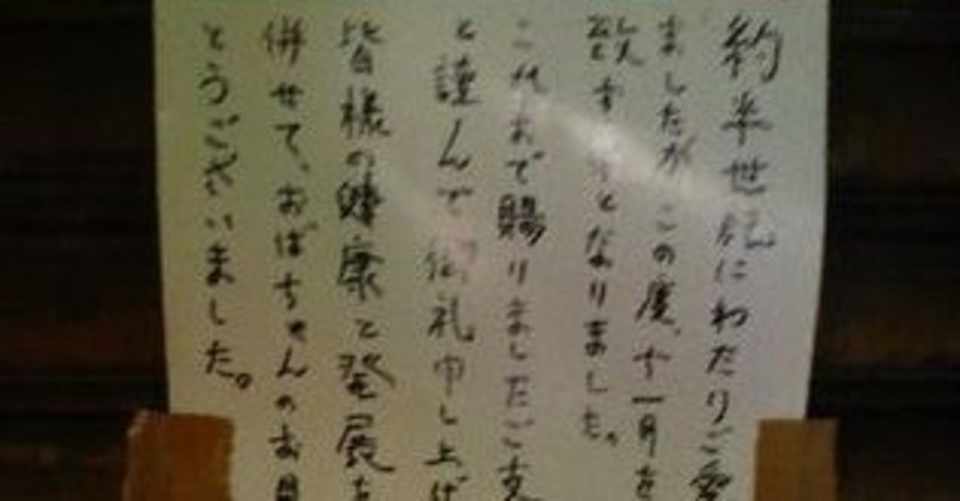 約半世紀にわたりご愛
ましたが、この度、十一月を
致すこととなりました。
これまで賜りましたご支
と謹んで御礼申し上げ
皆様の健康と発展を
併せて、おばちゃんのお
とうございました。